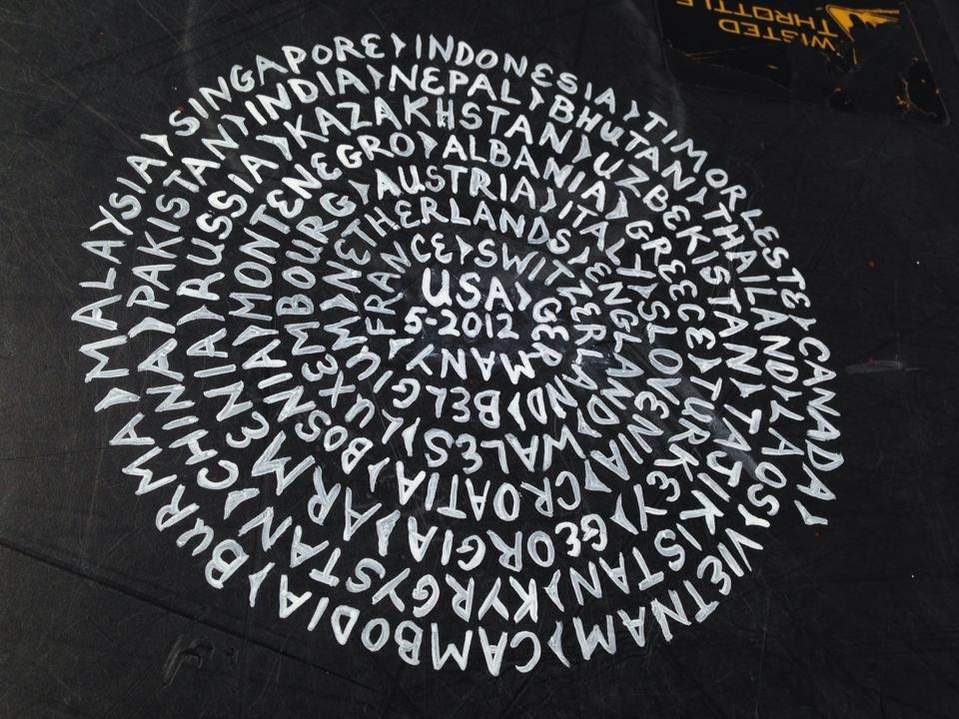 USA > GERMANY > FRANCE > SWITZERLAND > BELGIUM > NETHERLANDS > ENGLAND > WALES > LUXEMBOURG > AUSTRIA > ITALY > SLOVENIA > CROATIA > BOSNIA > MONTENEGRO > ALBANIA > GREECE > TURKEY > GEORGIA > ARMENIA > RUSSIA > KAZAKHSTAN > UZBEKISTAN > TAJIKISTAN > KYRGYSTAN > CHINA > PAKISTAN > INDIA > NEPAL > BHUTAN > THAILAND > LAOS > VIETNAM > CAMBODIA > BURMA > MALAYSIA > SINGAPORE > INDONESIA > TIMOR LESTE > CANADA >
5-2012
WISTED
THROTTLE